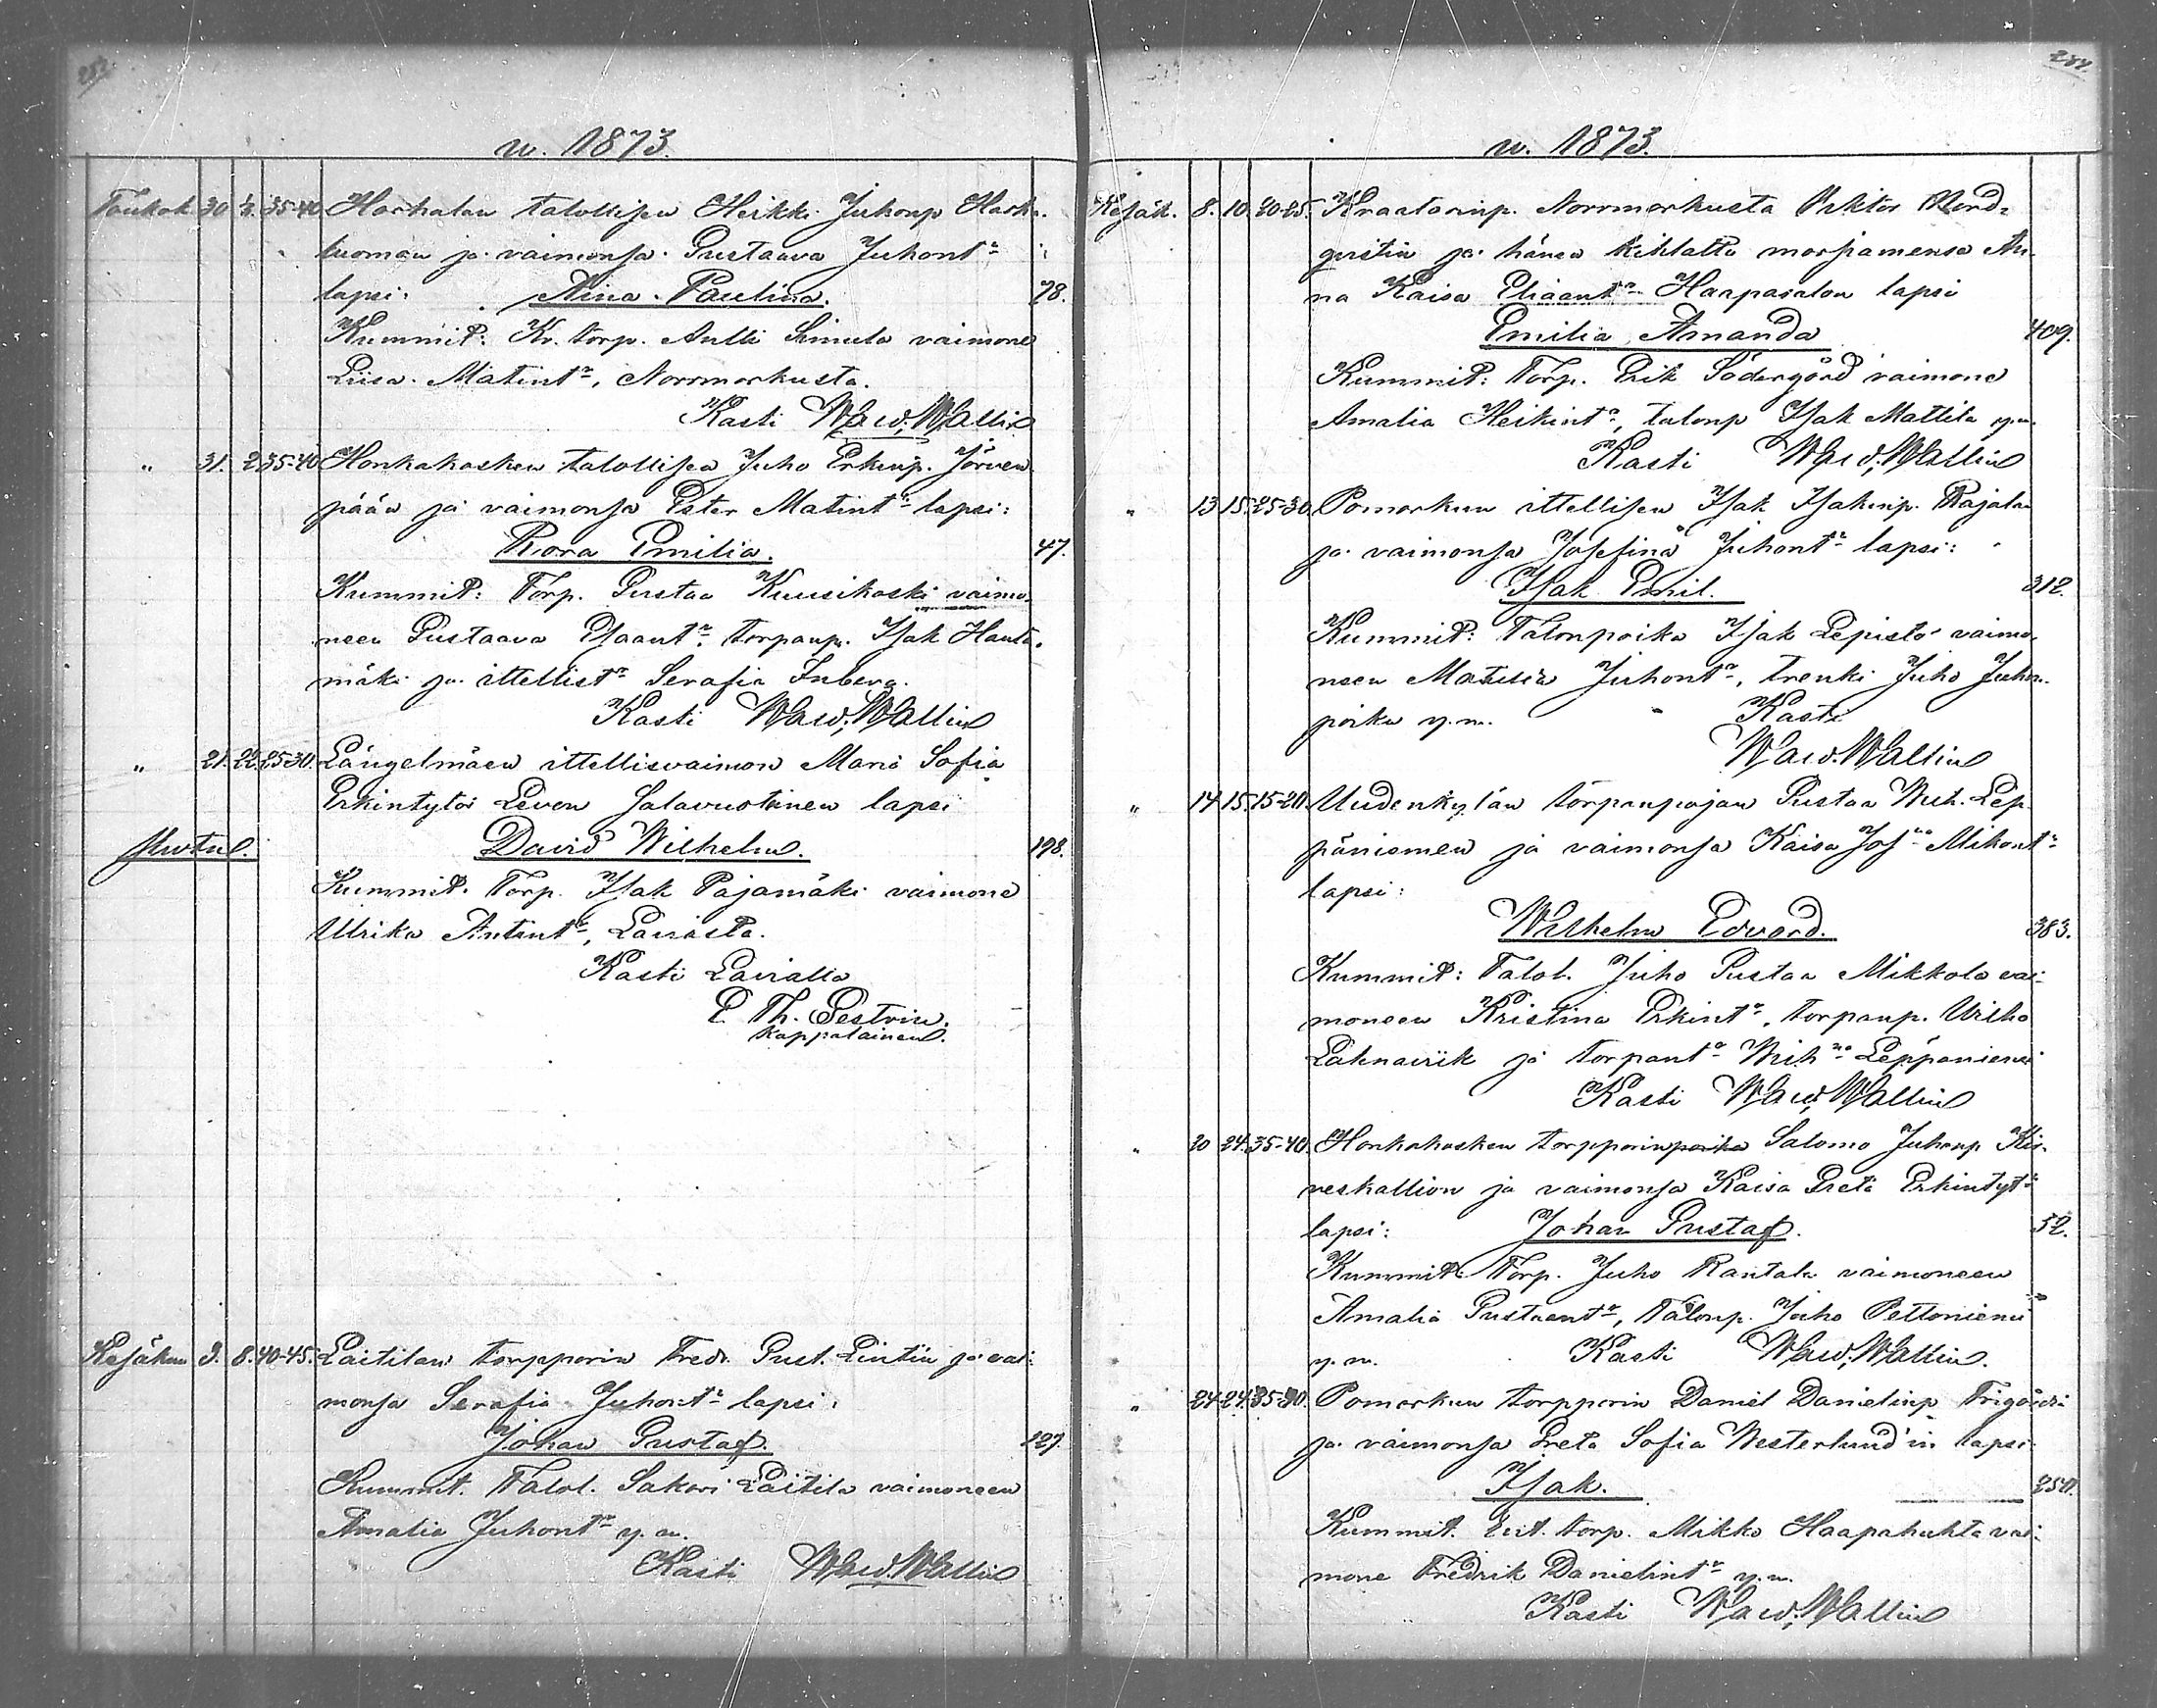 v. 1873.
Toukok. 30 1/6. 35-40 Harhalan talollisen Heikki Juhonp Harha-
luoman ja vaimonsa Gustaava Juhontr
lapsi: Aina Paulina. 78.
Kummit: Kr. torp. Antti Simula vaimone
Liisa Matintr, Norrmarkusta.
Kasti Wald. Wallin
" 31. 2 35-40 Honkakosken talollisen Juho Erkinp. Järven
pään ja vaimonsa Ester Matintr lapsi:
Rora Emilia. 47.
Kummit: Torp. Gustaa Kuusikoski vaimo-
neen Gustaava Esaantr torpanp. Isak Hauta-
mäki ja ittellistr Serafia Inberg.
Kasti Wald. Wallin
" 21. 22. 25-30. Längelmäen ittellisvaimon Maria Sofia
Erkintytö Leven Salavuoteinen lapsi
David Wilhelm. 198.
Kummit. Torp. Isak Pajamäki vaimone
Ulrika Antintr, Laviasta.
Kasti Lavialla
E. Th. Gestrin.
kappalainen.
Kesäkuu 3. 8. 40-45. Laitilan torpparin Fredr. Gust. Lintin ja vai-
monsa Serafia Juhontr lapsi:
Johan Gustaf. 127.
Kummit. Talol. Sakari Laitila vaimoneen
Amalia Juhontr y. m.
Kasti Wald. Wallin
284.
v. 1873.
Kesäk. 8. 10. 20-25. Kraatarinp. Norrmarkusta Viktor Nord-
qvistin ja hänen kihlattu morsiamensa An-
na Kaisa Eliaantr Haapasalon lapsi
Emilia Amanda 409.
Kummit: Torp. Erik Södergård vaimone
Amalia Heikintr, talonp Isak Mattila y. m.
Kasti Wald. Wallin
" 13 15. 25-30. Pomarkun ittellisen Isak Isakinp. Rajalan
ja vaimonsa Josefina Juhontr lapsi:
Isak Emil. 312.
Kummit: Talonpoika Isak Lepistö vaimo-
neen Matilda Juhontr, trenki Juho Juhon-
poika y. m. Kasti
Wald. Wallin
" 14. 15. 15-20. Uudenkylän torpanpojan Gustaa Wilh. Lep-
päniemen ja vaimonsa Kaisa Josna Mikontr
lapsi:
Wilhelm Edvard. 383.
Kummit: Talol. Juho Gustaa Mikkola vai-
moneen Kristina Erkintr, torpanp. Vilho
Lahnaviik ja torpantr Wilhna Leppäniemi
Kasti Wald. Wallin
" 20 24. 35-40. Honkakosken torpparinpoika Salomo Juhonp Kir-
veskallion ja vaimonsa Kaisa Greta Erkintytr
lapsi: Johan Gustaf. 52.
Kummit: Torp. Juho Rantala vaimoneen
Amalia Gustaantr, Talonp. Juho Peltoniemi
y. m. Kasti Wald. Wallin.
" 24. 24. 35-30. Pomarkun torpparin Daniel Danielinp Trigårdi
ja vaimonsa Greta Sofia Westerlund'in lapsi
Isak. 250.
Kummit. Ent. torp. Mikko Haapahuhta vai-
mone Fredrik Danielintr y. m.
Kasti Wald. Wallin